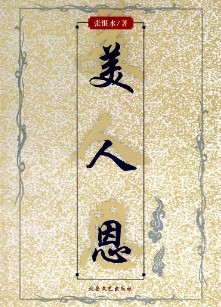 张恨水/著
美人恩
北岳文艺出版社